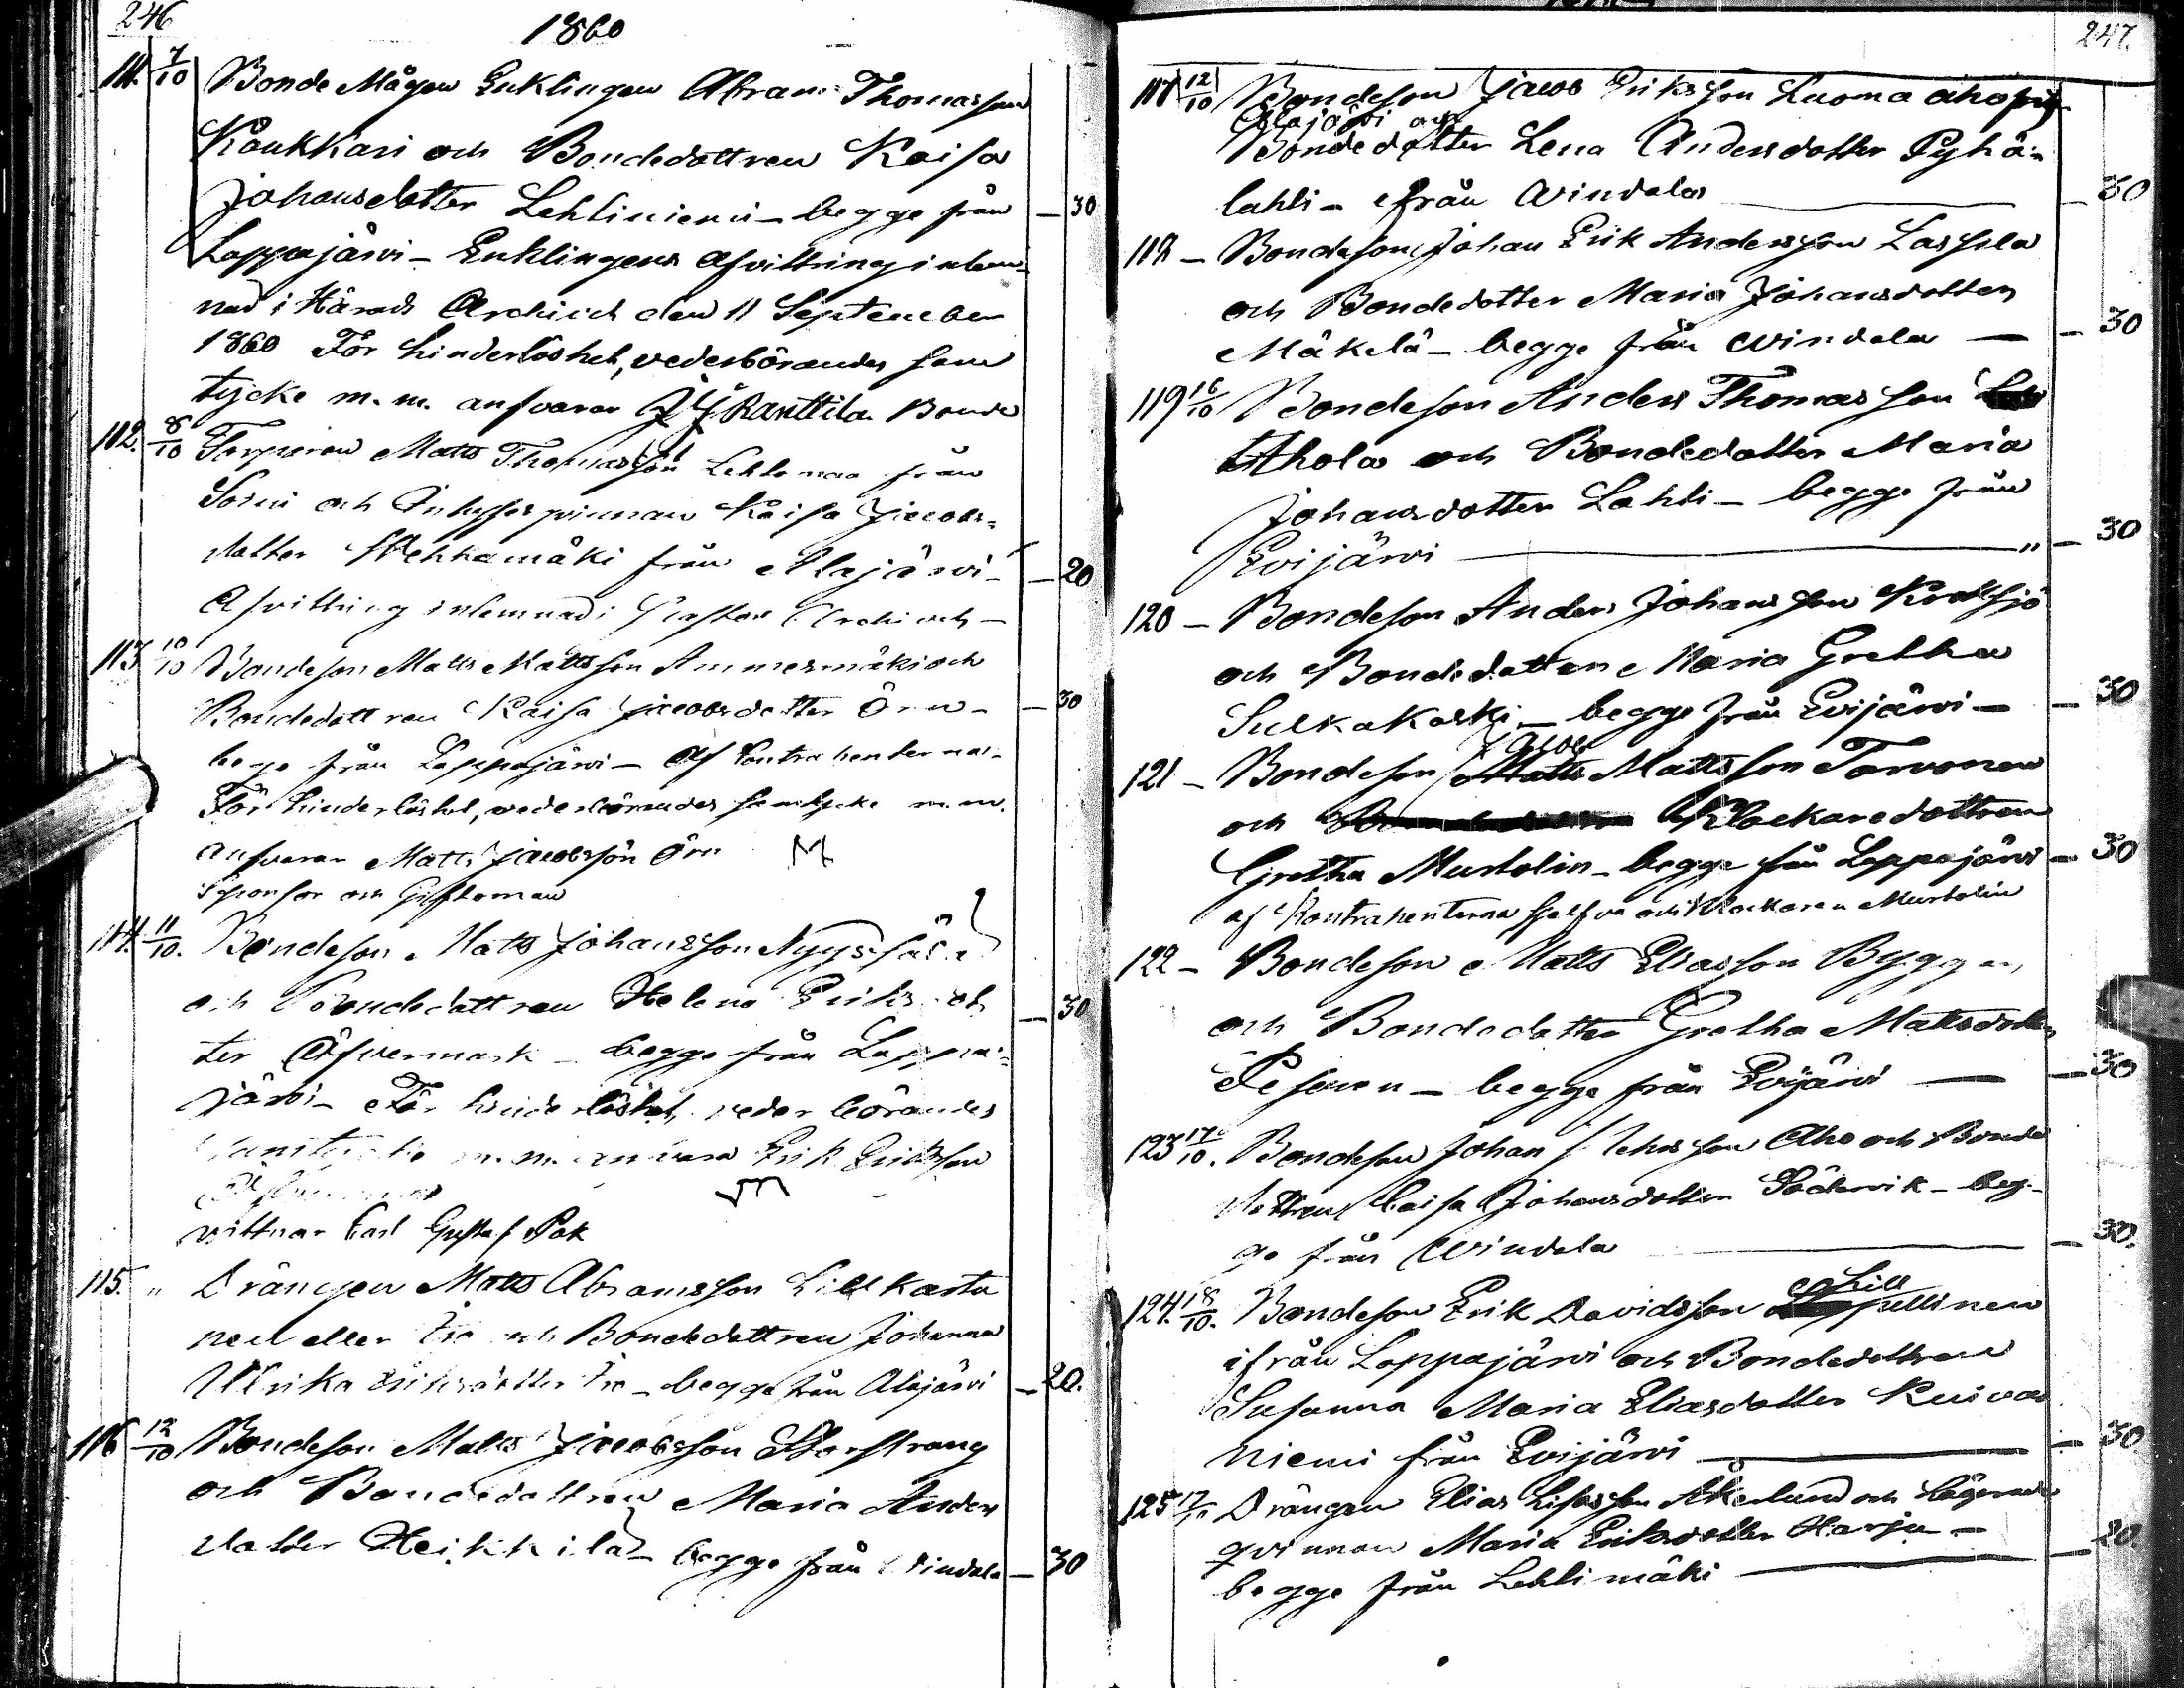 246
1860
111. 7/10 Bonde Mågen Enklingen Abram Thomasson
Kaukkari och Bondedottren Kaisa
Johansdotter Lehtiniemi - begge från — 30
Lappajärvi - Enklingens afvittring inlem-
nad i Härads Archivet den 11 September
1860 För hinderlöshet, vederbörandes sam
tycke m. m. ansvarar Ranttila Bonde
112. 8/10 Torparen Matts Thomasson från
Soini och Inhysespinnan Kaisa Jacobs-
dotter från Alajärvi - — 20
Afvittring inlemnad i Pastors Archivet -
113 10/10 Bondeson Matts Mattsson Ammesmäki och
Bondedottren Kaisa Jacobsdotter Örn - — 30
bege från Lappajärvi - Af Contrahenterna -
För hinderlöshet, vederbörandes samtycke m. m.
ansvarar Matts Jacobsson Örn
Sponsor och Giftoman
114. 11/10. Bondeson Matts Johansson
och Bondedottren Helena Eriksdot — 30
ter Öfvermark - begge från Lappa-
järvi - För hinderlöshet, vederbörandes
samtycke m. m. ansvarar Erik Eriksson
vittnar Carl Gustaf Pak
115. " Drängen Matts Abramsson Lill kasta
nen eller och Bondedottren Johanna
Ulrika - begge från Alajärvi — 20.
116 12/10 Bondeson Matts Jacobsson Storstrang
och Bondedottren Maria Anders
dotter Heikkilä - begge från Windala — 30
247.
117 12/10 Bondeson Jacob Eriksson Luoma aho från
Alajärvi och
Bondedotter Lena Andersdotter Pyhä-
lahti - från Windala — 30
118 - Bondeson Johan Erik Andersson Lassila
och Bondedotter Maria Johansdotter
Mäkelä - begge från Windala — 30
119 16/10 Bondeson Anders Thomasson
Ahola och Bondedotter Maria
Johansdotter Lahti - begge från
Evijärvi — " — 30
120 - Bondeson Anders Johansson
och Bondedottren Maria Gretha
Sulkakoski - begge från Evijärvi — 30
Jacob
121 - Bondeson Matts Mattsson Torvonen
och Klockaredottren
Gretha Murtolin - begge från Lappajärvi — 30
af Kontrahenterna sjelfva och Klockaren Murtolin
122 - Bondeson Matts Eliasson Byggar,
och Bondedotter Gretha Mattsdotter
Pesonen - begge från Evijärvi — 30
123 17/10. Bondeson Johan Johansson Aho och Bonde
dottren Caisa Johansdotter Södervik - beg-
ge från Windala — 30.
Lill
124. 18/10. Bondeson Erik Davidsson pellinen
ifrån Lappajärvi och Bondedottren
Susanna Maria Eliasdotter Kuiva
niemi från Evijärvi — 30
125 Drängen Elias Åkerlund och
qvinnan Maria Eriksdotter Harju -
begge från Lehtimäki — 20.